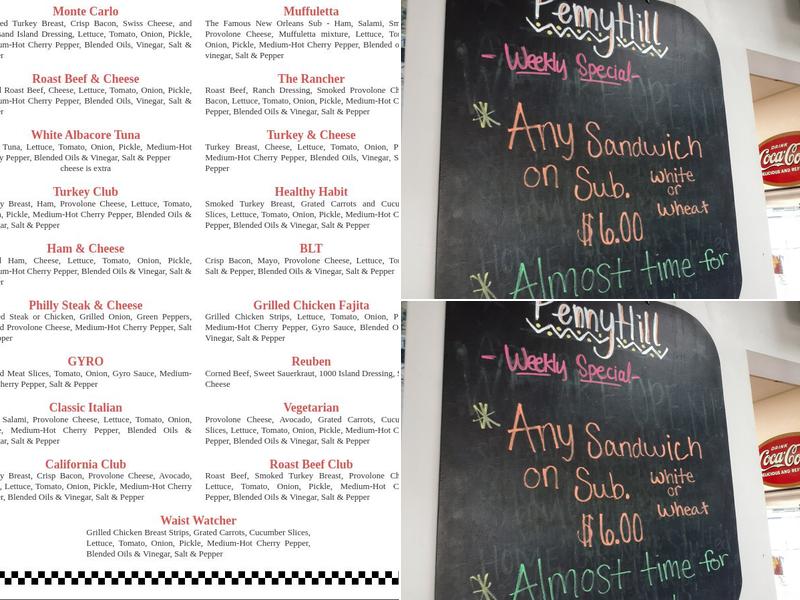 Monte Carlo
Turkey Breast, Crisp Bacon, Swiss Cheese, and
Island Dressing, Lettuce, Tomato, Onion, Pickle,
Hot Cherry Pepper, Blended Oils, Vinegar, Salt &
Roast Beef & Cheese
Roast Beef, Cheese, Lettuce, Tomato, Onion, Pickle,
Hot Cherry Pepper, Blended Oils, Vinegar, Salt &
White Albacore Tuna
Tuna, Lettuce, Tomato, Onion, Pickle, Medium-Hot
Pepper, Blended Oils & Vinegar, Salt & Pepper
cheese is extra
Turkey Club
Breast, Ham, Provolone Cheese, Lettuce, Tomato,
Pickle, Medium-Hot Cherry Pepper, Blended Oils &
Salt & Pepper
Ham & Cheese
Ham, Cheese, Lettuce, Tomato, Onion, Pickle,
Hot Cherry Pepper, Blended Oils & Vinegar, Salt &
Philly Steak & Cheese
Steak or Chicken, Grilled Onion, Green Peppers,
Provolone Cheese, Medium-Hot Cherry Pepper, Salt
GYRO
Meat Slices, Tomato, Onion, Gyro Sauce, Medium-
Pepper, Salt & Pepper
Classic Italian
Salami, Provolone Cheese, Lettuce, Tomato, Onion,
Medium-Hot Cherry Pepper, Blended Oils &
Salt & Pepper
California Club
Breast, Crisp Bacon, Provolone Cheese, Avocado,
Lettuce, Tomato, Onion, Pickle, Medium-Hot Cherry
Blended Oils & Vinegar, Salt & Pepper
Muffuletta
The Famous New Orleans Sub - Ham, Salami,
Provolone Cheese, Muffuletta mixture, Lettuce,
Onion, Pickle, Medium-Hot Cherry Pepper, Blended
vinegar, Salt & Pepper
The Rancher
Roast Beef, Ranch Dressing, Smoked Provolone
Bacon, Lettuce, Tomato, Onion, Pickle, Medium-Hot
Pepper, Blended Oils & Vinegar, Salt & Pepper
Turkey & Cheese
Turkey Breast, Cheese, Lettuce, Tomato, Onion,
Medium-Hot Cherry Pepper, Blended Oils & Vinegar,
Pepper
Healthy Habit
Smoked Turkey Breast, Grated Carrots and
Slices, Lettuce, Tomato, Onion, Pickle, Medium-Hot
Pepper, Blended Oils & Vinegar, Salt & Pepper
BLT
Crisp Bacon, Mayo, Provolone Cheese, Lettuce,
Salt & Pepper, Blended Oils & Vinegar, Salt & Pepper
Grilled Chicken Fajita
Grilled Chicken Strips, Lettuce, Tomato, Onion,
Medium-Hot Cherry Pepper, Gyro Sauce, Blended
Vinegar, Salt & Pepper
Reuben
Corned Beef, Sweet Sauerkraut, 1000 Island Dressing,
Cheese
Vegetarian
Provolone Cheese, Avocado, Grated Carrots,
Slices, Lettuce, Tomato, Onion, Pickle, Medium-Hot
Pepper, Blended Oils & Vinegar, Salt & Pepper
Roast Beef Club
Roast Beef, Smoked Turkey Breast, Provolone
Lettuce, Tomato, Onion, Pickle, Medium-Hot
Pepper, Blended Oils & Vinegar, Salt & Pepper
Waist Watcher
Grilled Chicken Breast Strips, Grated Carrots, Cucumber Slices,
Lettuce, Tomato, Onion, Pickle, Medium-Hot Cherry Pepper,
Blended Oils & Vinegar, Salt & Pepper
PennyHill
- Weekly Special -
Any Sandwich
on Sub. White
or
Wheat
$6.00
Almost time for
DRINK
Coca-Cola
PennyHill
- Weekly Special -
Any Sandwich
on Sub. White
or
Wheat
$6.00
Almost time for
DRINK
Coca-Cola